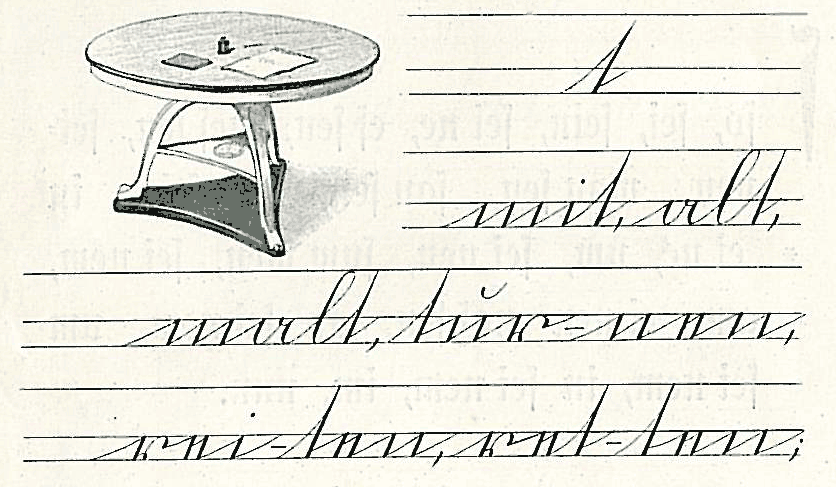 t
mit, alt,
malt, tur-nen,
rei-ten, ret-ten;